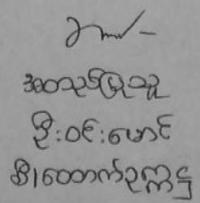 အတည်ပြုသူ
ဦးဝင်းမောင်
စီ၊ထောက်ဥက္ကဋ္ဌ